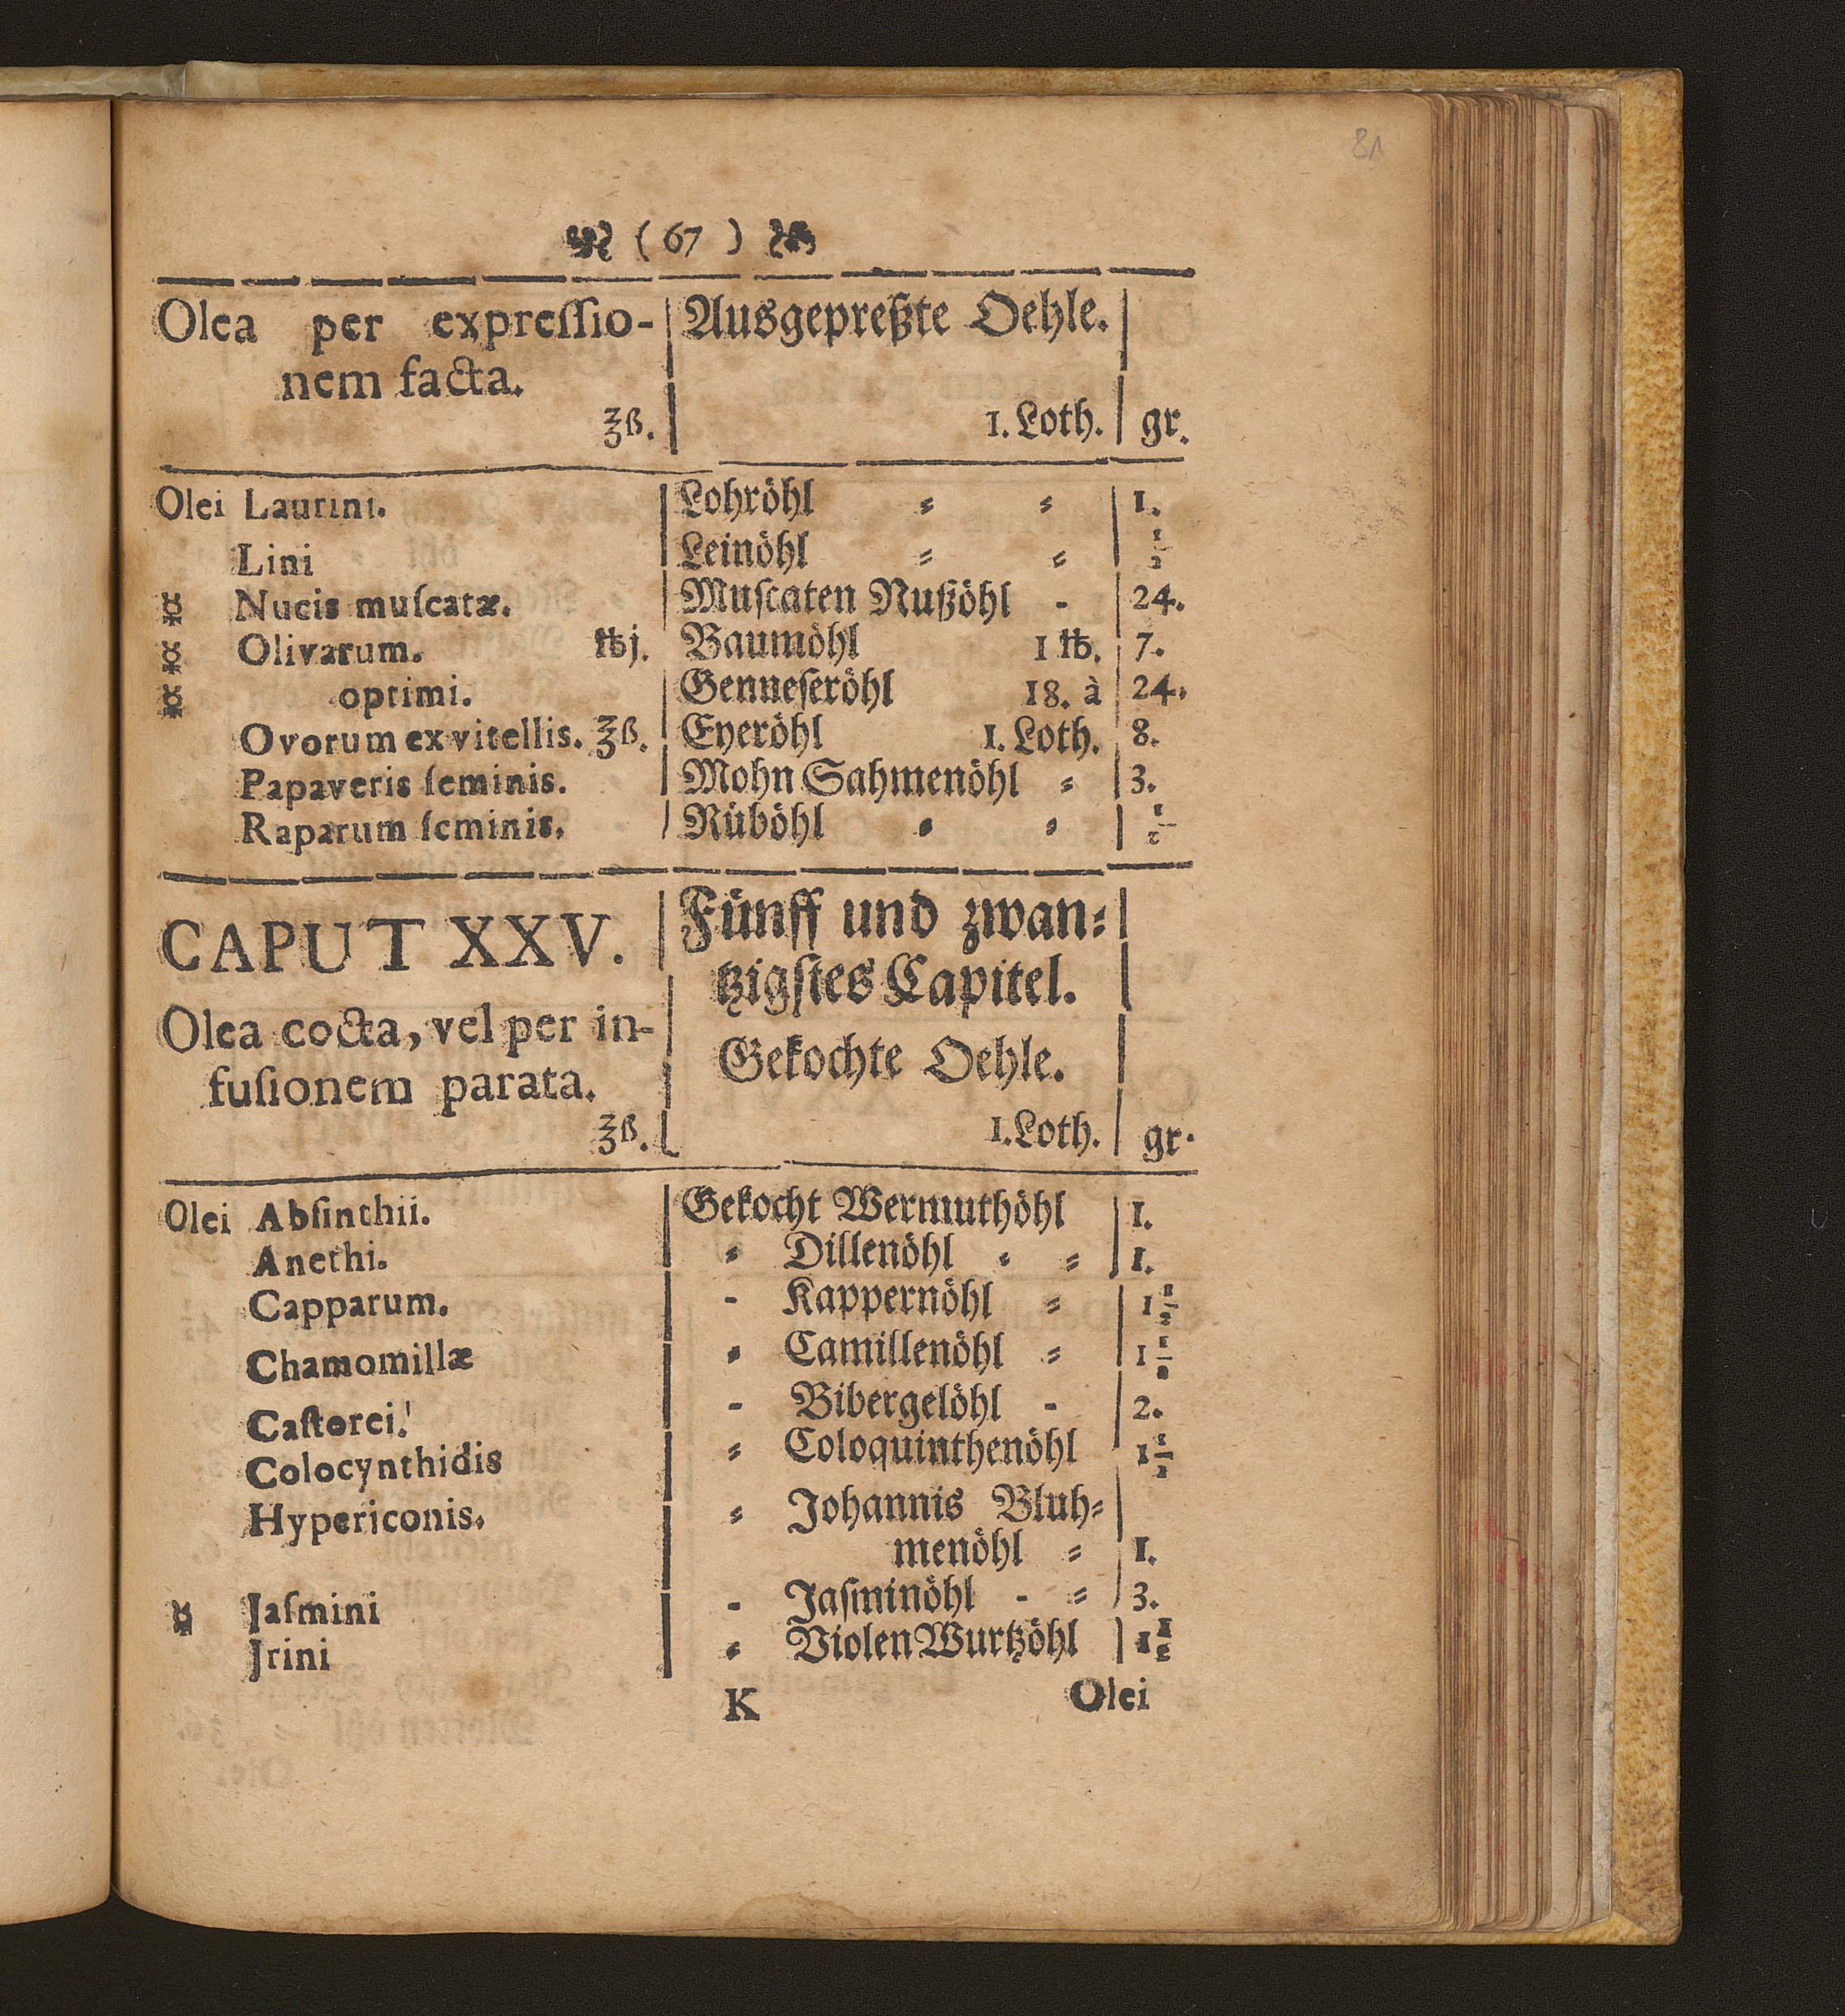 81
( 67 )
Olea per expreſſio- Ausgepreßte Oehle.
nem facta.
ʒß. 1. Loth. gr.
Olei Laurini. Lohröhl ⸗ ⸗ 1.
Lini Leinöhl ⸗ ⸗ ½
☿ Nucis muſcatæ. Muſcaten Nußöhl - 24.
☿ Olivarum. ℔j. Baumöhl 1 ℔. 7.
☿ optimi. Genneſeröhl 18. à 24.
Ovorum ex vitellis. ʒß. Eyeröhl 1. Loth. 8.
Papaveris ſeminis. Mohn Sahmenöhl ⸗ 3.
Raparum ſeminis. Rüböhl ⸗ ⸗ ½
CAPUT XXV. Fünff und zwan⸗
tzigſtes Capitel.
Olea cocta, vel per in- Gekochte Oehle.
fuſionem parata.
ʒß. 1. Loth. gr.
Olei Abſinthii. Gekocht Wermuthöhl 1.
Anethi. ⸗ Dillenöhl ⸗ ⸗ 1.
Capparum. - Kappernöhl ⸗ 1½
Chamomillæ ⸗ Camillenöhl ⸗ 1½
Caſtorei. - Bibergelöhl - 2.
Colocynthidis ⸗ Coloquinthenöhl 1½
Hypericonis. ⸗ Johannis Bluh⸗
menöhl ⸗ 1.
☿ Jaſmini - Jaſminöhl - ⸗ 3.
Jrini ⸗ Violen Wurtzöhl 1½
K Olei